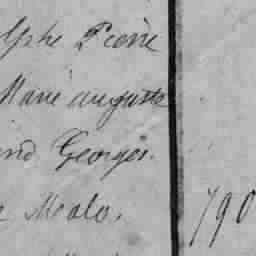 lphe Pierre
Marie auguste
and Georges.
e Malo. 790